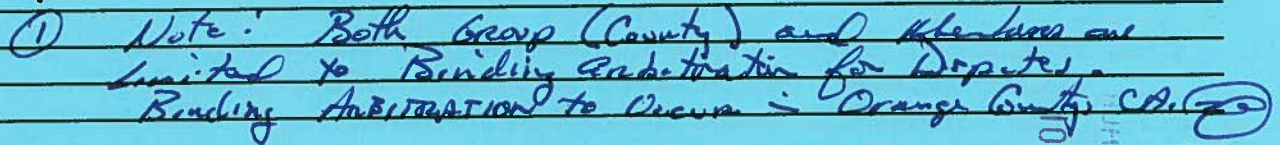 ① Note: Both Group (County) and are
Limited to Binding Arbitration for Disputes.
Binding ARBITRATION to Occur in Orange County, CA.